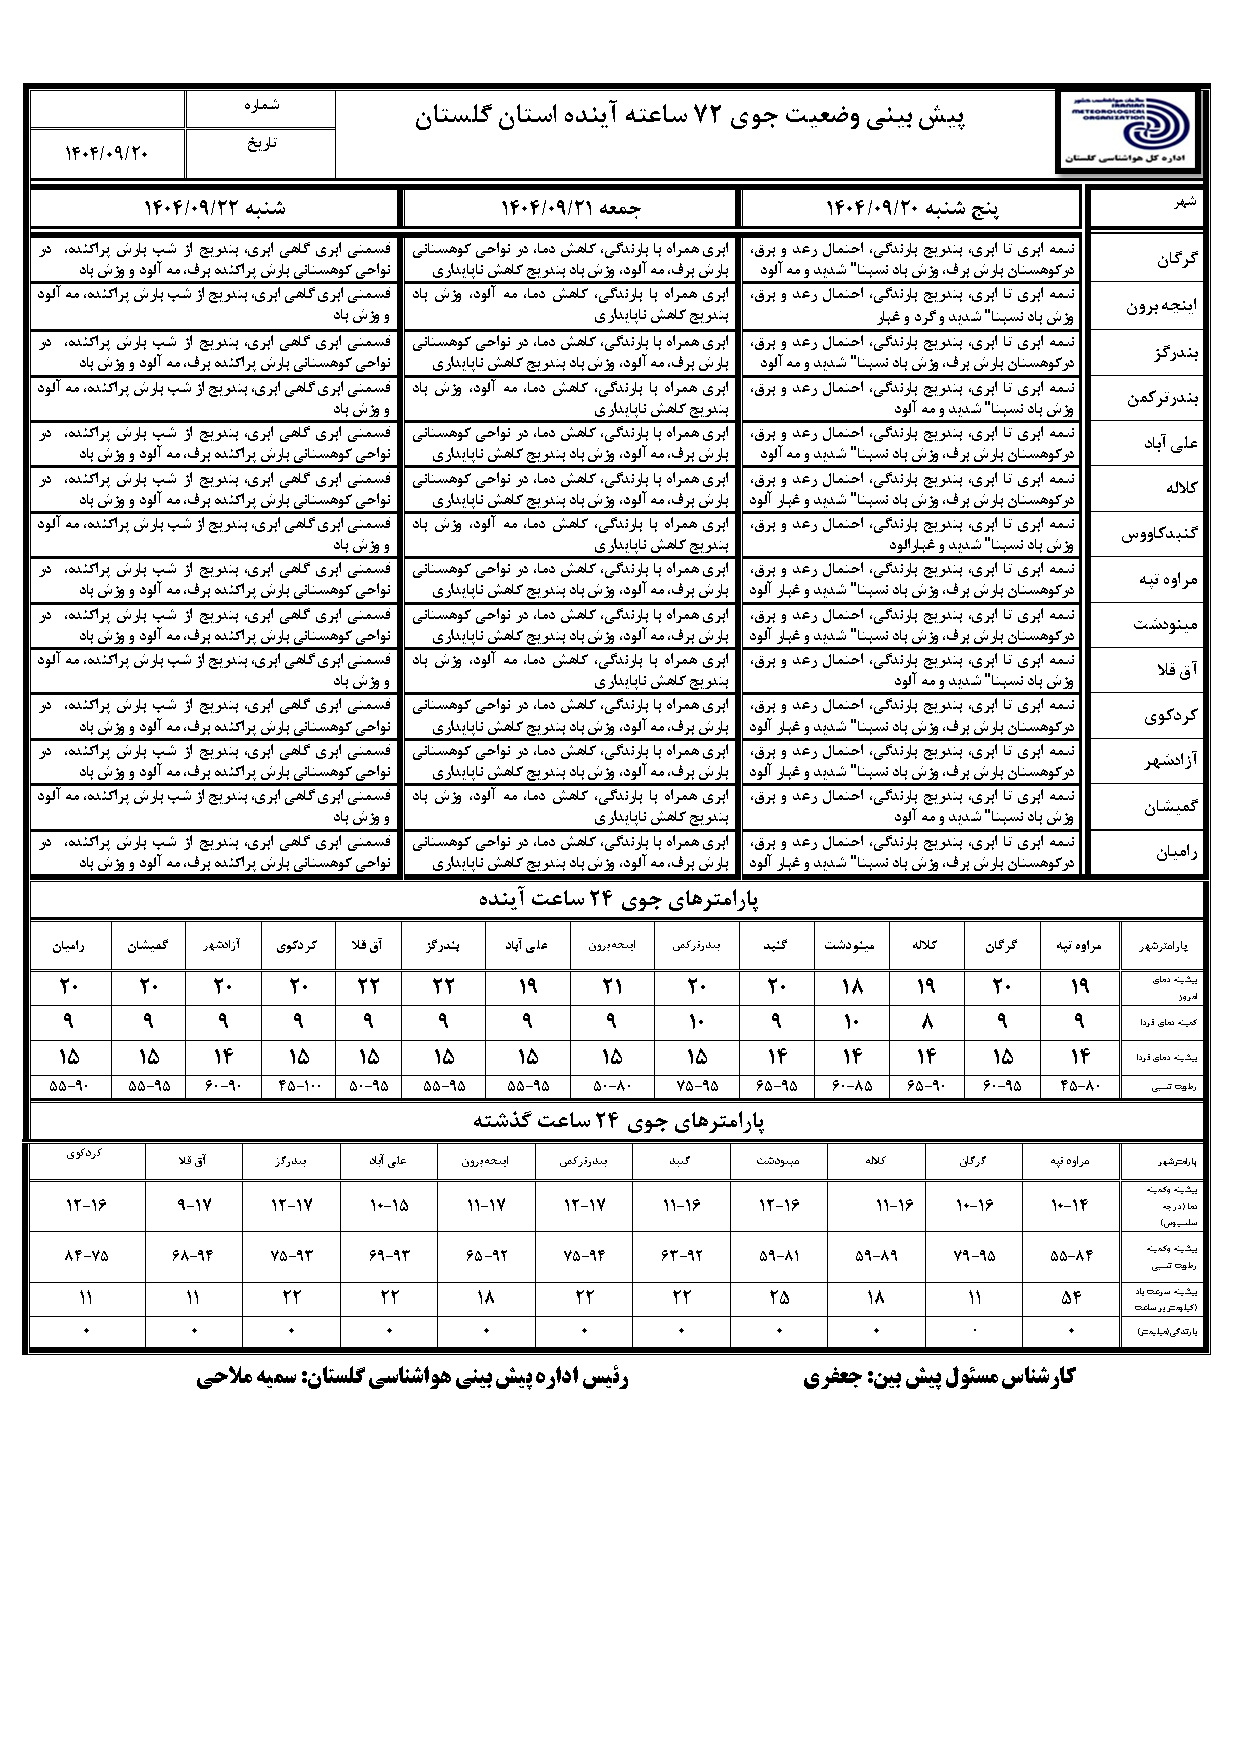 سازمان هواشناسی کشور
IRANIAN
METEOROLOGICAL
ORGANIZATION
اداره کل هواشناسی گلستان
پیش بینی وضعیت جوی ۷۲ ساعته آینده استان گلستان
شماره
تاریخ ۱۴۰۴/۰۹/۲۰
شهر پنج شنبه ۱۴۰۴/۰۹/۲۰ جمعه ۱۴۰۴/۰۹/۲۱ شنبه ۱۴۰۴/۰۹/۲۲
گرگان
نیمه ابری تا ابری، بتدریج بارندگی، احتمال رعد و برق،
درکوهستان بارش برف، وزش باد نسبتا" شدید و مه آلود
ابری همراه با بارندگی، کاهش دما، در نواحی کوهستانی
بارش برف، مه آلود، وزش باد بتدریج کاهش ناپایداری
قسمتی ابری گاهی ابری، بتدریج از شب بارش پراکنده، در
نواحی کوهستانی بارش پراکنده برف، مه آلود و وزش باد
اینچه برون
نیمه ابری تا ابری، بتدریج بارندگی، احتمال رعد و برق،
وزش باد نسبتا" شدید و گرد و غبار
ابری همراه با بارندگی، کاهش دما، مه آلود، وزش باد
بتدریج کاهش ناپایداری
قسمتی ابری گاهی ابری، بتدریج از شب بارش پراکنده، مه آلود
و وزش باد
بندرگز
نیمه ابری تا ابری، بتدریج بارندگی، احتمال رعد و برق،
درکوهستان بارش برف، وزش باد نسبتا" شدید و مه آلود
ابری همراه با بارندگی، کاهش دما، در نواحی کوهستانی
بارش برف، مه آلود، وزش باد بتدریج کاهش ناپایداری
قسمتی ابری گاهی ابری، بتدریج از شب بارش پراکنده، در
نواحی کوهستانی بارش پراکنده برف، مه آلود و وزش باد
بندرترکمن
نیمه ابری تا ابری، بتدریج بارندگی، احتمال رعد و برق،
وزش باد نسبتا" شدید و مه آلود
ابری همراه با بارندگی، کاهش دما، مه آلود، وزش باد
بتدریج کاهش ناپایداری
قسمتی ابری گاهی ابری، بتدریج از شب بارش پراکنده، مه آلود
و وزش باد
علی آباد
نیمه ابری تا ابری، بتدریج بارندگی، احتمال رعد و برق،
درکوهستان بارش برف، وزش باد نسبتا" شدید و مه آلود
ابری همراه با بارندگی، کاهش دما، در نواحی کوهستانی
بارش برف، مه آلود، وزش باد بتدریج کاهش ناپایداری
قسمتی ابری گاهی ابری، بتدریج از شب بارش پراکنده، در
نواحی کوهستانی بارش پراکنده برف، مه آلود و وزش باد
کلاله
نیمه ابری تا ابری، بتدریج بارندگی، احتمال رعد و برق،
درکوهستان بارش برف، وزش باد نسبتا" شدید و غبار آلود
ابری همراه با بارندگی، کاهش دما، در نواحی کوهستانی
بارش برف، مه آلود، وزش باد بتدریج کاهش ناپایداری
قسمتی ابری گاهی ابری، بتدریج از شب بارش پراکنده، در
نواحی کوهستانی بارش پراکنده برف، مه آلود و وزش باد
گنبدکاووس
نیمه ابری تا ابری، بتدریج بارندگی، احتمال رعد و برق،
وزش باد نسبتا" شدید و غبارالود
ابری همراه با بارندگی، کاهش دما، مه آلود، وزش باد
بتدریج کاهش ناپایداری
قسمتی ابری گاهی ابری، بتدریج از شب بارش پراکنده، مه آلود
و وزش باد
مراوه تپه
نیمه ابری تا ابری، بتدریج بارندگی، احتمال رعد و برق،
درکوهستان بارش برف، وزش باد نسبتا" شدید و غبار آلود
ابری همراه با بارندگی، کاهش دما، در نواحی کوهستانی
بارش برف، مه آلود، وزش باد بتدریج کاهش ناپایداری
قسمتی ابری گاهی ابری، بتدریج از شب بارش پراکنده، در
نواحی کوهستانی بارش پراکنده برف، مه آلود و وزش باد
مینودشت
نیمه ابری تا ابری، بتدریج بارندگی، احتمال رعد و برق،
درکوهستان بارش برف، وزش باد نسبتا" شدید و غبار آلود
ابری همراه با بارندگی، کاهش دما، در نواحی کوهستانی
بارش برف، مه آلود، وزش باد بتدریج کاهش ناپایداری
قسمتی ابری گاهی ابری، بتدریج از شب بارش پراکنده، در
نواحی کوهستانی بارش پراکنده برف، مه آلود و وزش باد
آق قلا
نیمه ابری تا ابری، بتدریج بارندگی، احتمال رعد و برق،
وزش باد نسبتا" شدید و مه آلود
ابری همراه با بارندگی، کاهش دما، مه آلود، وزش باد
بتدریج کاهش ناپایداری
قسمتی ابری گاهی ابری، بتدریج از شب بارش پراکنده، مه آلود
و وزش باد
کردکوی
نیمه ابری تا ابری، بتدریج بارندگی، احتمال رعد و برق،
درکوهستان بارش برف، وزش باد نسبتا" شدید و غبار آلود
ابری همراه با بارندگی، کاهش دما، در نواحی کوهستانی
بارش برف، مه آلود، وزش باد بتدریج کاهش ناپایداری
قسمتی ابری گاهی ابری، بتدریج از شب بارش پراکنده، در
نواحی کوهستانی بارش پراکنده برف، مه آلود و وزش باد
آزادشهر
نیمه ابری تا ابری، بتدریج بارندگی، احتمال رعد و برق،
درکوهستان بارش برف، وزش باد نسبتا" شدید و غبار آلود
ابری همراه با بارندگی، کاهش دما، در نواحی کوهستانی
بارش برف، مه آلود، وزش باد بتدریج کاهش ناپایداری
قسمتی ابری گاهی ابری، بتدریج از شب بارش پراکنده، در
نواحی کوهستانی بارش پراکنده برف، مه آلود و وزش باد
گمیشان
نیمه ابری تا ابری، بتدریج بارندگی، احتمال رعد و برق،
وزش باد نسبتا" شدید و مه آلود
ابری همراه با بارندگی، کاهش دما، مه آلود، وزش باد
بتدریج کاهش ناپایداری
قسمتی ابری گاهی ابری، بتدریج از شب بارش پراکنده، مه آلود
و وزش باد
رامیان
نیمه ابری تا ابری، بتدریج بارندگی، احتمال رعد و برق،
درکوهستان بارش برف، وزش باد نسبتا" شدید و غبار آلود
ابری همراه با بارندگی، کاهش دما، در نواحی کوهستانی
بارش برف، مه آلود، وزش باد بتدریج کاهش ناپایداری
قسمتی ابری گاهی ابری، بتدریج از شب بارش پراکنده، در
نواحی کوهستانی بارش پراکنده برف، مه آلود و وزش باد
پارامترهای جوی ۲۴ ساعت آینده
پارامترشهر مراوه تپه گرگان کلاله مینودشت گنبد بندرترکمن اینچه برون علی آباد بندرگز آق قلا کردکوی آزادشهر گمیشان رامیان
بیشینه دمای امروز ۱۹ ۲۰ ۱۹ ۱۸ ۲۰ ۲۰ ۲۱ ۱۹ ۲۲ ۲۲ ۲۰ ۲۰ ۲۰ ۲۰
کمینه دمای فردا ۹ ۹ ۸ ۱۰ ۹ ۱۰ ۹ ۹ ۹ ۹ ۹ ۹ ۹ ۹
بیشینه دمای فردا ۱۴ ۱۵ ۱۴ ۱۴ ۱۴ ۱۵ ۱۵ ۱۵ ۱۵ ۱۵ ۱۵ ۱۴ ۱۵ ۱۵
رطوبت نسبی ۴۵-۸۰ ۶۰-۹۵ ۶۵-۹۰ ۶۰-۸۵ ۶۵-۹۵ ۷۵-۹۵ ۵۰-۸۰ ۵۵-۹۵ ۵۵-۹۵ ۵۰-۹۵ ۴۵-۱۰۰ ۶۰-۹۰ ۵۵-۹۵ ۵۵-۹۰
پارامترهای جوی ۲۴ ساعت گذشته
پارامترشهر مراوه تپه گرگان کلاله مینودشت گنبد بندرترکمن اینچه برون علی آباد بندرگز آق قلا کردکوی
بیشینه وکمینه دما (درجه سلسیوس) ۱۰-۱۴ ۱۰-۱۶ ۱۱-۱۶ ۱۲-۱۶ ۱۱-۱۶ ۱۲-۱۷ ۱۱-۱۷ ۱۰-۱۵ ۱۲-۱۷ ۹-۱۷ ۱۲-۱۶
بیشینه وکمینه رطوبت نسبی ۵۵-۸۴ ۷۹-۹۵ ۵۹-۸۹ ۵۹-۸۱ ۶۳-۹۲ ۷۵-۹۴ ۶۵-۹۲ ۶۹-۹۳ ۷۵-۹۳ ۶۸-۹۴ ۸۴-۷۵
بیشینه سرعت باد (کیلومتر بر ساعت) ۵۴ ۱۱ ۱۸ ۲۵ ۲۲ ۲۲ ۱۸ ۲۲ ۲۲ ۱۱ ۱۱
بارندگی(میلیمتر) ۰ ۰ ۰ ۰ ۰ ۰ ۰ ۰ ۰ ۰ ۰
کارشناس مسئول پیش بین: جعفری رئیس اداره پیش بینی هواشناسی گلستان: سمیه ملاحی